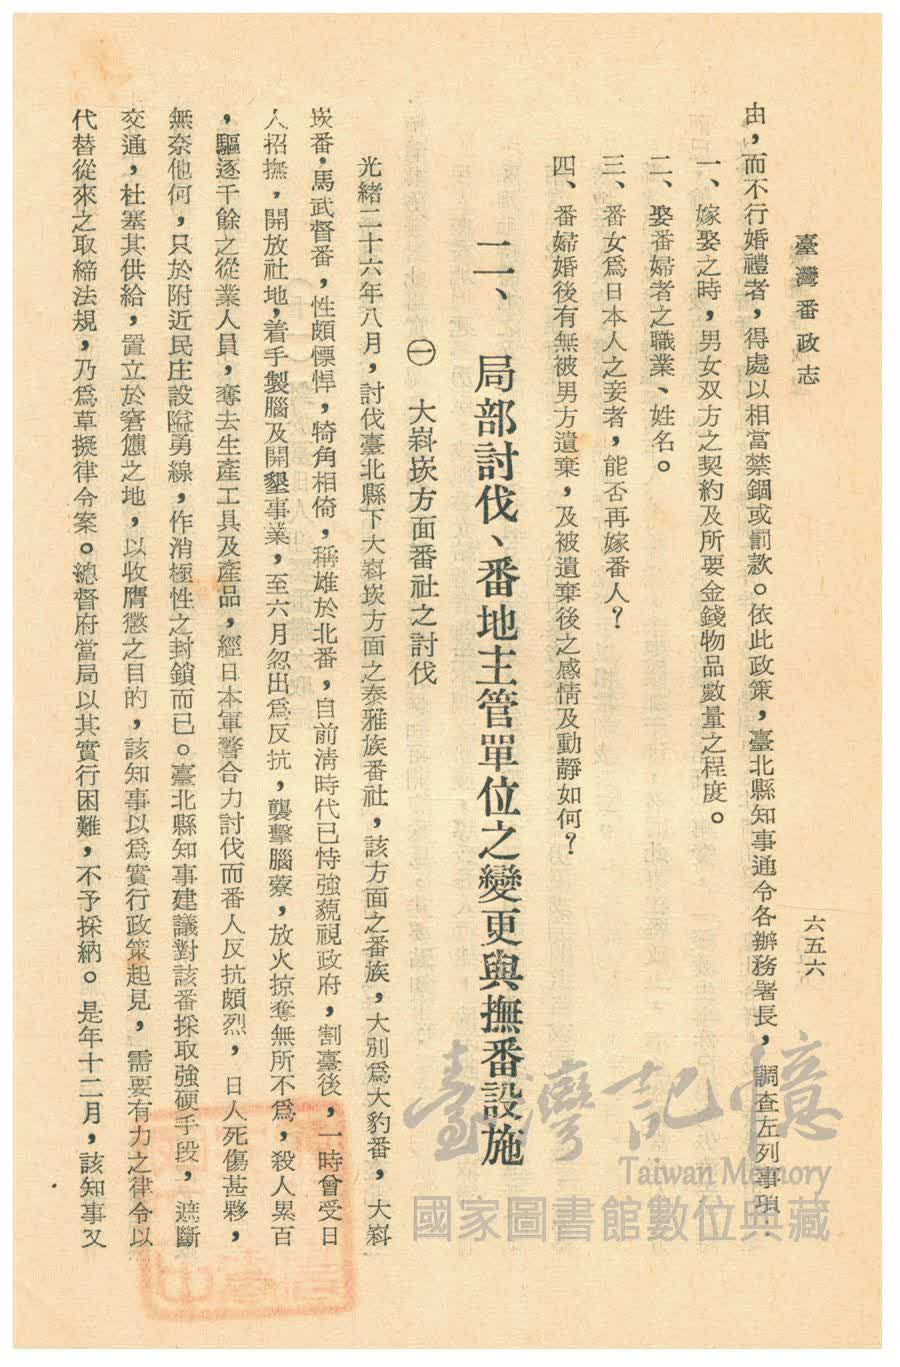 臺灣番政志
六五六
由，而不行婚禮者，得處以相當禁錮或罰款。依此政策，臺北縣知事通令各辦務署長，調查左列事項：
一、嫁娶之時，男女双方之契約及所要金錢物品數量之程度。
二、娶番婦者之職業、姓名。
三、番女爲日本人之妾者，能否再嫁番人？
四、番婦婚後有無被男方遺棄，及被遺棄後之感情及動靜如何？
二、局部討伐、番地主管單位之變更與撫番設施
㊀ 大嵙崁方面番社之討伐
光緒二十六年八月，討伐臺北縣下大嵙崁方面之泰雅族番社，該方面之番族，大別爲大豹番，大嵙
崁番，馬武督番，性頗慓悍，犄角相倚，稱雄於北番，自前淸時代已恃強藐視政府，割臺後，一時曾受日
人招撫，開放社地，着手製腦及開墾事業，至六月忽出爲反抗，襲擊腦藔，放火掠奪無所不爲，殺人累百
，驅逐千餘之從業人員，奪去生產工具及產品，經日本軍警合力討伐而番人反抗頗烈，日人死傷甚夥，
無奈他何，只於附近民庄設隘勇線，作消極性之封鎖而已。臺北縣知事建議對該番採取強硬手段，遮斷
交通，杜塞其供給，置立於窘憊之地，以收膺懲之目的，該知事以爲實行政策起見，需要有力之律令以
代替從來之取締法規，乃爲草擬律令案。總督府當局以其實行困難，不予採納。是年十二月，該知事又
臺灣記憶
Taiwan Memory
國家圖書館數位典藏